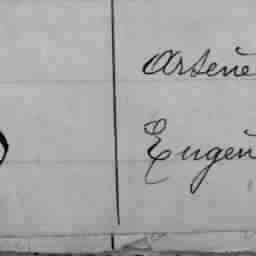 Arsène
Eugèn